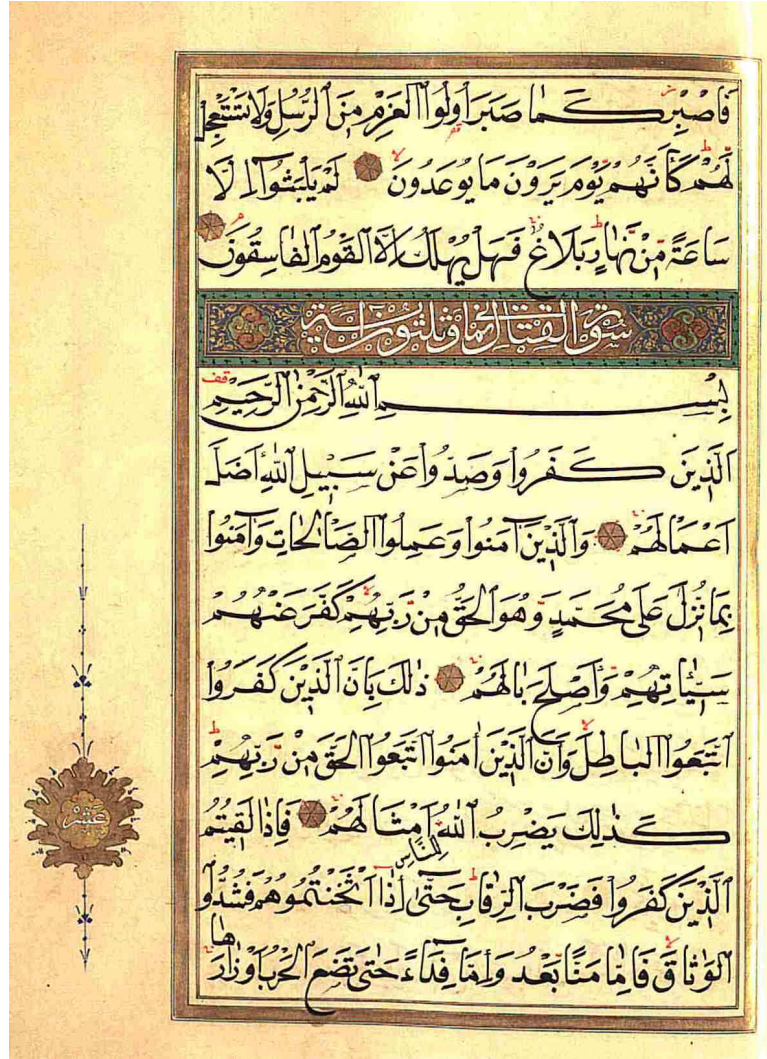 فَاصْبِرْ كَمَا صَبَرَ اُولُوا الْعَزْمِ مِنَ الرُّسُلِ وَلَا تَسْتَعْجِلْ
لَهُمْ كَاَنَّهُمْ يَوْمَ يَرَوْنَ مَا يُوعَدُونَ لَمْ يَلْبَثُوا اِلَّا
سَاعَةً مِنْ نَهَارٍ بَلَاغٌ فَهَلْ يُهْلَكُ اِلَّا الْقَوْمُ الْفَاسِقُونَ
سورة القتال
بِسْمِ اللّٰهِ الرَّحْمٰنِ الرَّحِيمِ
اَلَّذِينَ كَفَرُوا وَصَدُّوا عَنْ سَبِيلِ اللّٰهِ اَضَلَّ
اَعْمَالَهُمْ وَالَّذِينَ اٰمَنُوا وَعَمِلُوا الصَّالِحَاتِ وَاٰمَنُوا
بِمَا نُزِّلَ عَلٰى مُحَمَّدٍ وَهُوَ الْحَقُّ مِنْ رَبِّهِمْ كَفَّرَ عَنْهُمْ
سَيِّئَاتِهِمْ وَاَصْلَحَ بَالَهُمْ ذٰلِكَ بِاَنَّ الَّذِينَ كَفَرُوا
اتَّبَعُوا الْبَاطِلَ وَاَنَّ الَّذِينَ اٰمَنُوا اتَّبَعُوا الْحَقَّ مِنْ رَبِّهِمْ
كَذٰلِكَ يَضْرِبُ اللّٰهُ لِلنَّاسِ اَمْثَالَهُمْ فَاِذَا لَقِيتُمُ
الَّذِينَ كَفَرُوا فَضَرْبَ الرِّقَابِ حَتّٰى اِذَا اَثْخَنْتُمُوهُمْ فَشُدُّوا
الْوَثَاقَ فَاِمَّا مَنًّا بَعْدُ وَاِمَّا فِدَاءً حَتّٰى تَضَعَ الْحَرْبُ اَوْزَارَهَا
عشر